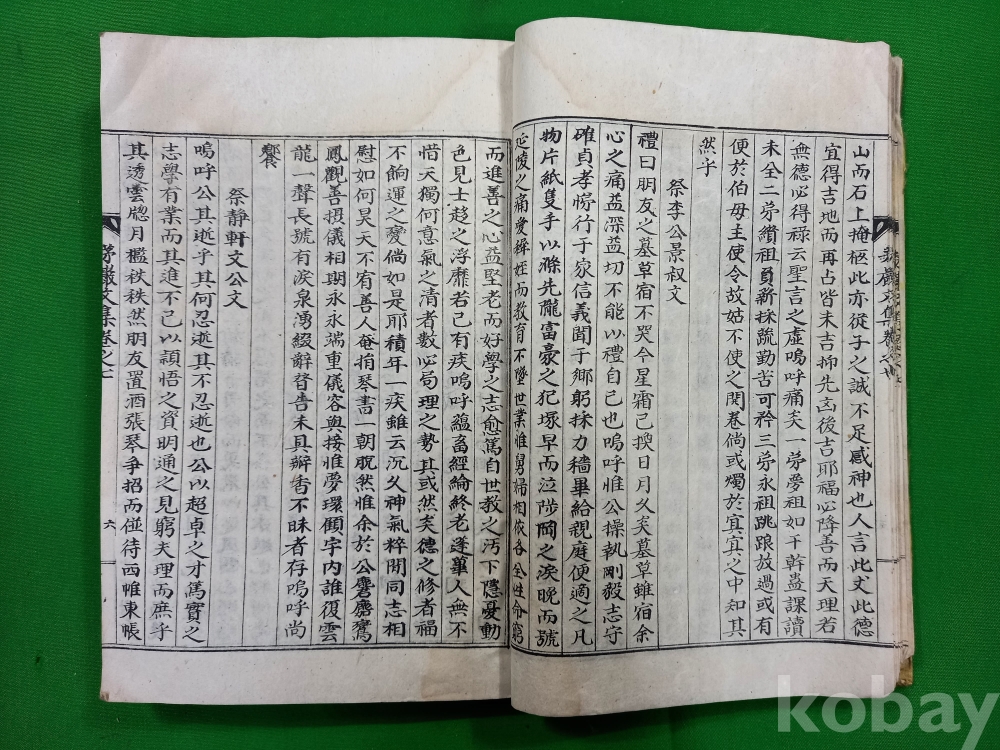 山而石上掩柩此亦從子之誠不足感神也人言此丈此德
宜得吉地而再占皆未吉抑先凶後吉耶福必降善而天理若
無德必得祿云聖言之虛嗚呼痛矣一弟夢祖如干幹蠱課讀
未全二弟纘祖負薪採疏勤苦可矜三弟永祖跳踉放過或有
便於伯母主使令故姑不使之閱卷倘或燭於宜宜之中知其
然乎
祭李公景叔文
禮曰朋友之墓草宿不哭今星霜已換日月久矣墓草雖宿余
心之痛益深益切不能以禮自已也嗚呼惟公操執剛毅志守
確貞孝悌行于家信義聞于鄉躬採力穡畢給親庭便適之凡
物片紙隻手以滌先隴富豪之犯塚早而泣陟岡之淚晩而號
延陵之痛愛稱姪而教育不墜世業惟舅婦相依各全性命窮
而進善之心益堅老而好學之志愈篤自世教之汚下隱憂動
色見士趍之浮靡若己有疾嗚呼蘊畜經綸終老蓬蓽人無不
惜天獨何意氣之清者數必局理之勢其或然矣德之修者福
不餉運之變倘如是耶積年一疾雖云沉久神氣粹開同志相
慰如何昊天不宥善人奄捐琴書一朝脫然惟余於公麏麏鸞
鳳觀善摂儀相期永永端重儀容與接惟夢環顧宇內誰復雲
龍一聲長號有淚泉湧綴辭替告未具瓣香不昧者存嗚呼尚
饗
祭静軒文公文
嗚呼公其逝乎其何忍逝其不忍逝也公以超卓之才篤實之
志學有業而其進不已以頴悟之資明通之見窮夫理而庶乎
其透雲牕月檻秩秩然朋友置酒張琴争招而碰待西帷東帳
文集卷之七
六
kobay